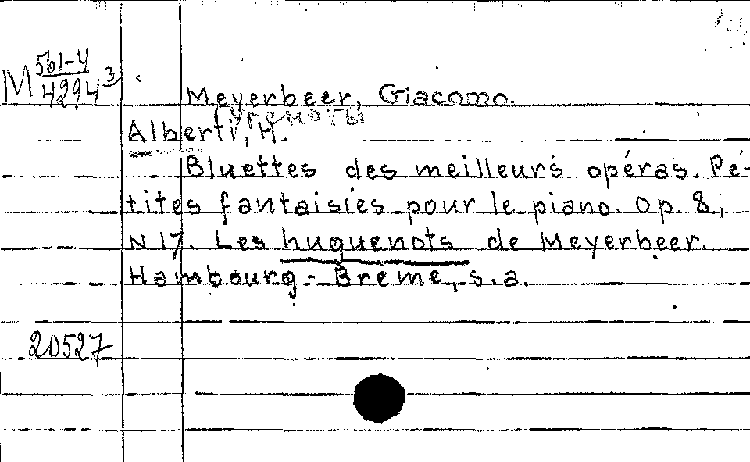 M 561-4
4994³
Meyerbeer, Giacomo.
Гугеноты
Alberti, H.
Bluettes des meilleurs opéras. Pe-
tites fantaisies pour le piano. Op. 8,
N 17. Les huguenots de Meyerbeer.
Hambourg-Breme, s.a.
20527